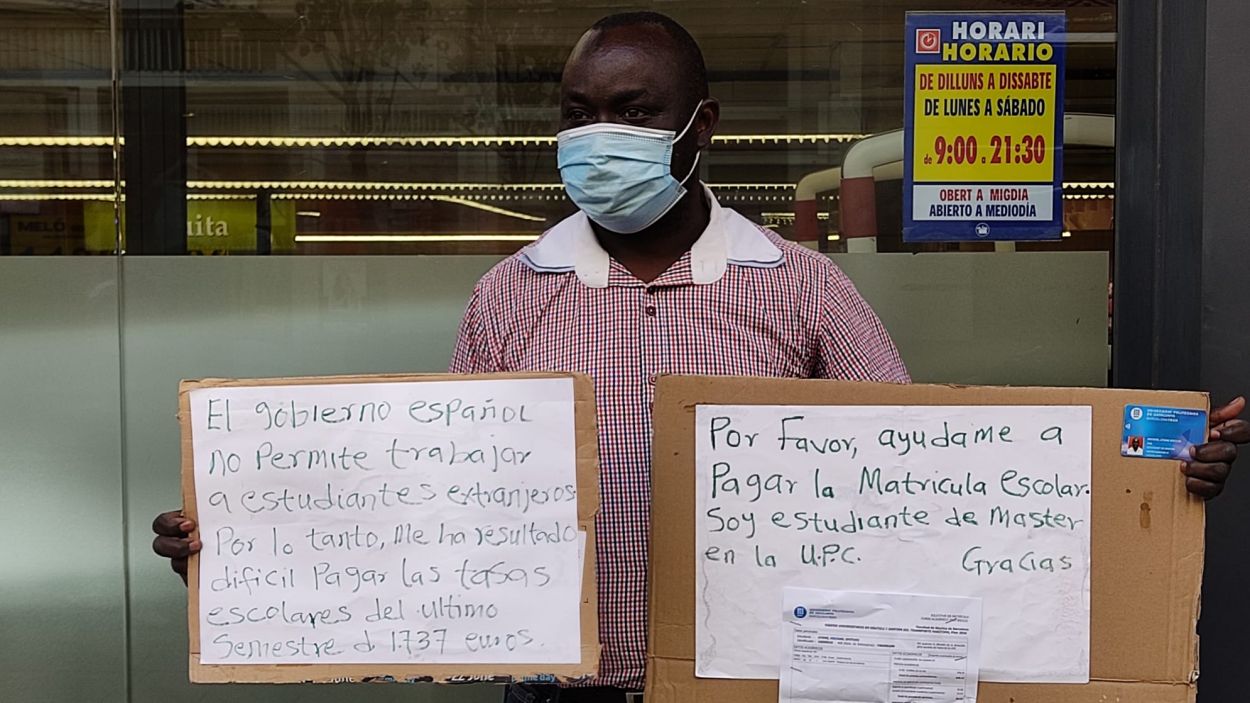 HORARI
HORARIO
DE DILLUNS A DISSABTE
DE LUNES A SÁBADO
de 9:00 a 21:30
OBERT A MIGDIA
ABIERTO A MEDIODÍA
MELO
uita
El gobierno español
no Permite trabajar
a estudiantes extranjeros.
Por lo tanto, Me ha resultado
dificil Pagar las tasas
escolares del ultimo
Semestre d 1.737 euros.
Por Favor, ayudame a
Pagar la Matricula escolar.
Soy estudiante de Master
en la U.P.C.
Gracias
UNIVERSITAT POLITÈCNICA
DE CATALUNYA
BARCELONATECH
UNIVERSITAT POLITÈCNICA
DE CATALUNYA
22 JUNE
prime day